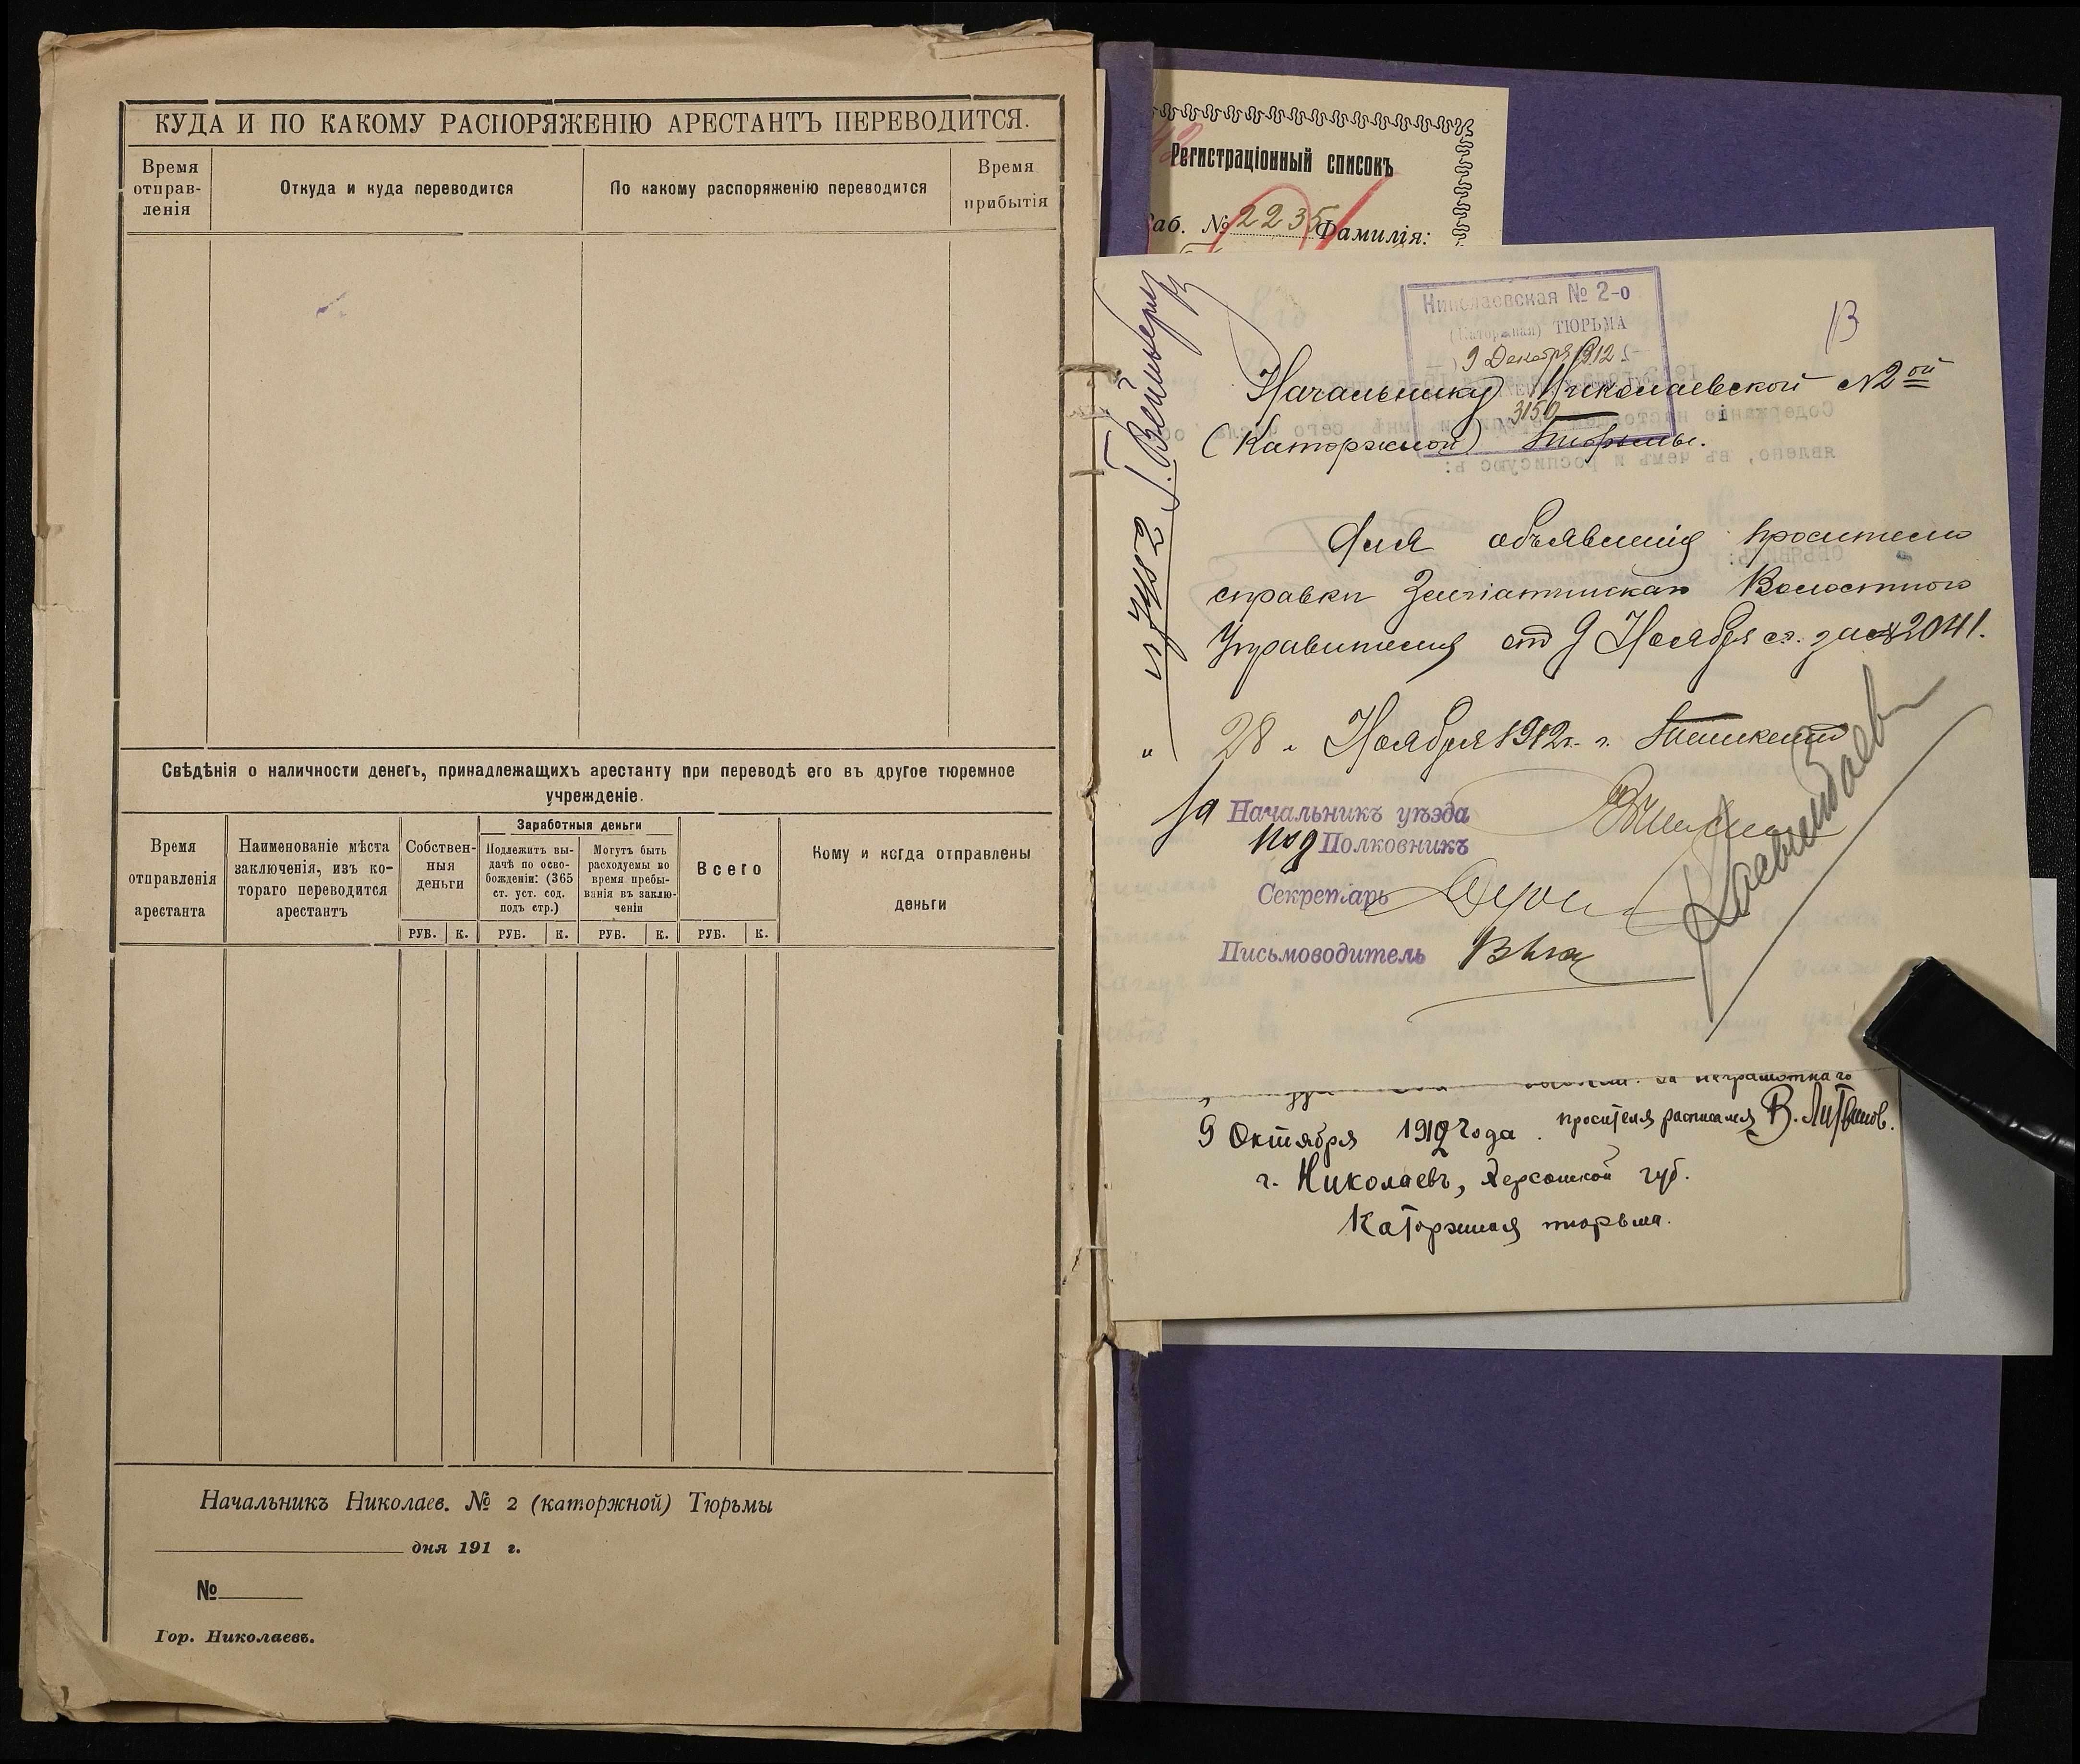 КУДА И ПО КАКОМУ РАСПОРЯЖЕНІЮ АРЕСТАНТЪ ПЕРЕВОДИТСЯ.
Время отправ-ленія
Откуда и куда переводится
По какому распоряженію переводится
Время прибытія
Свѣдѣнія о наличности денегъ, принадлежащихъ арестанту при переводѣ его въ другое тюремное
учрежденіе.
Время
отправленія
арестанта
Наименованіе мѣста
заключенія, изъ ко-
тораго переводится
арестантъ
Собствен-
ныя
деньги
Заработныя деньги
Подлежитъ вы-
дачѣ по осво-
божденіи: (365
ст. уст. сод.
подъ стр.)
Могутъ быть
расходуемы во
время пребы-
ванія въ заклю-
ченіи
Всего
Кому и когда отправлены
деньги
РУБ. К. РУБ. К. РУБ. К. РУБ. К.
Начальникъ Николаев. № 2 (каторжной) Тюрьмы
дня 191 г.
№
Гор. Николаевъ.
Регистраціонный списокъ
аб. № 2235 Фамилія:
Николаевская № 2-о
(Каторжная) ТЮРЬМА
9 Декабря 1912
3150
В
Начальнику Николаевской №2ой
(Каторжной) Тюрьмы.
Для объявленія просителю
справки Волостного
Управителя от 9 Ноября с.г. за №2041.
" 28 " Ноября 1912 г. г. Ташкентъ
За Начальникъ уѣзда
Под Полковникъ
Секретарь
Письмоводитель
За неграмотнаго
9 Октября 1912 года. просителя расписался В. Литвинов.
г. Николаевъ, Херсонской губ.
Каторжная тюрьма.